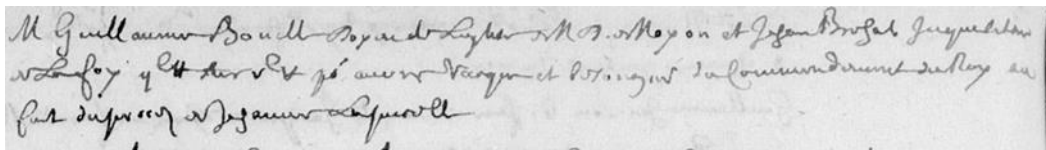 M Guillaume Bouille Doyen de Leglise de N D de Noyon et Jehan Brehal Inquisiteur
de la foy ql et pñt avoir vacque et besongne du Commandement du Roy au
fait du proces de Jehanne Lapucelle